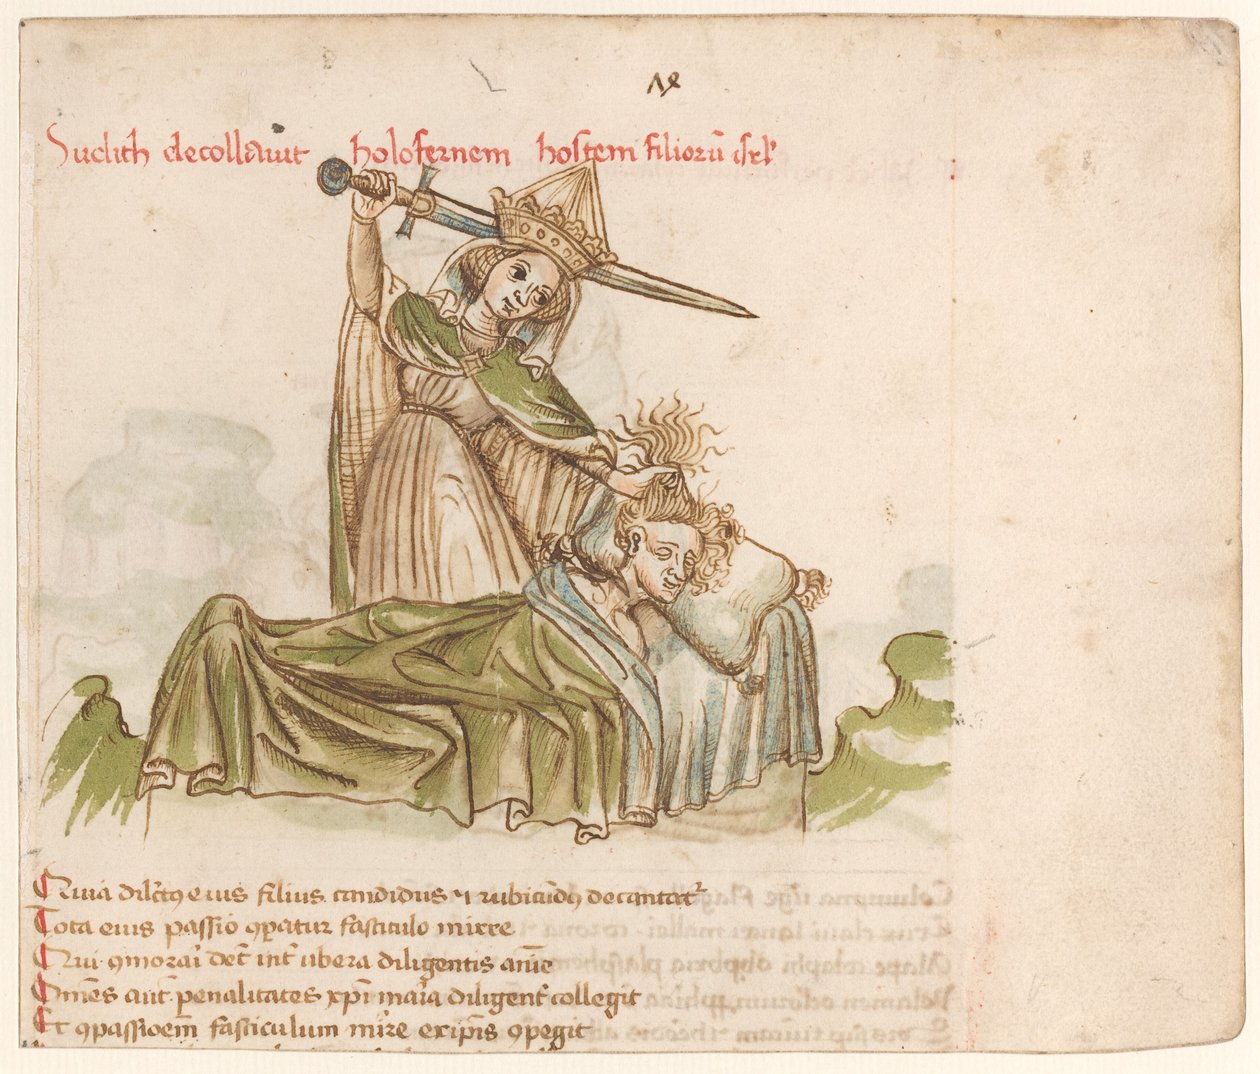 Λ8
Iudith decollauit holofernem hostem filiorū isrl'
Quia dilc̄tꝰ eius filius candidus ⁊ rubicūdꝰ decantat᷑
Tota eius passio ꝯparatur fasciculo mirre
Qui ꝯmorari det int' ubera diligentis anīe
Omēs aut penalitates xp̄i maria diligent' collegit
Et ꝯpassioem fasciculum mirre ex ip̄is ꝯpegit